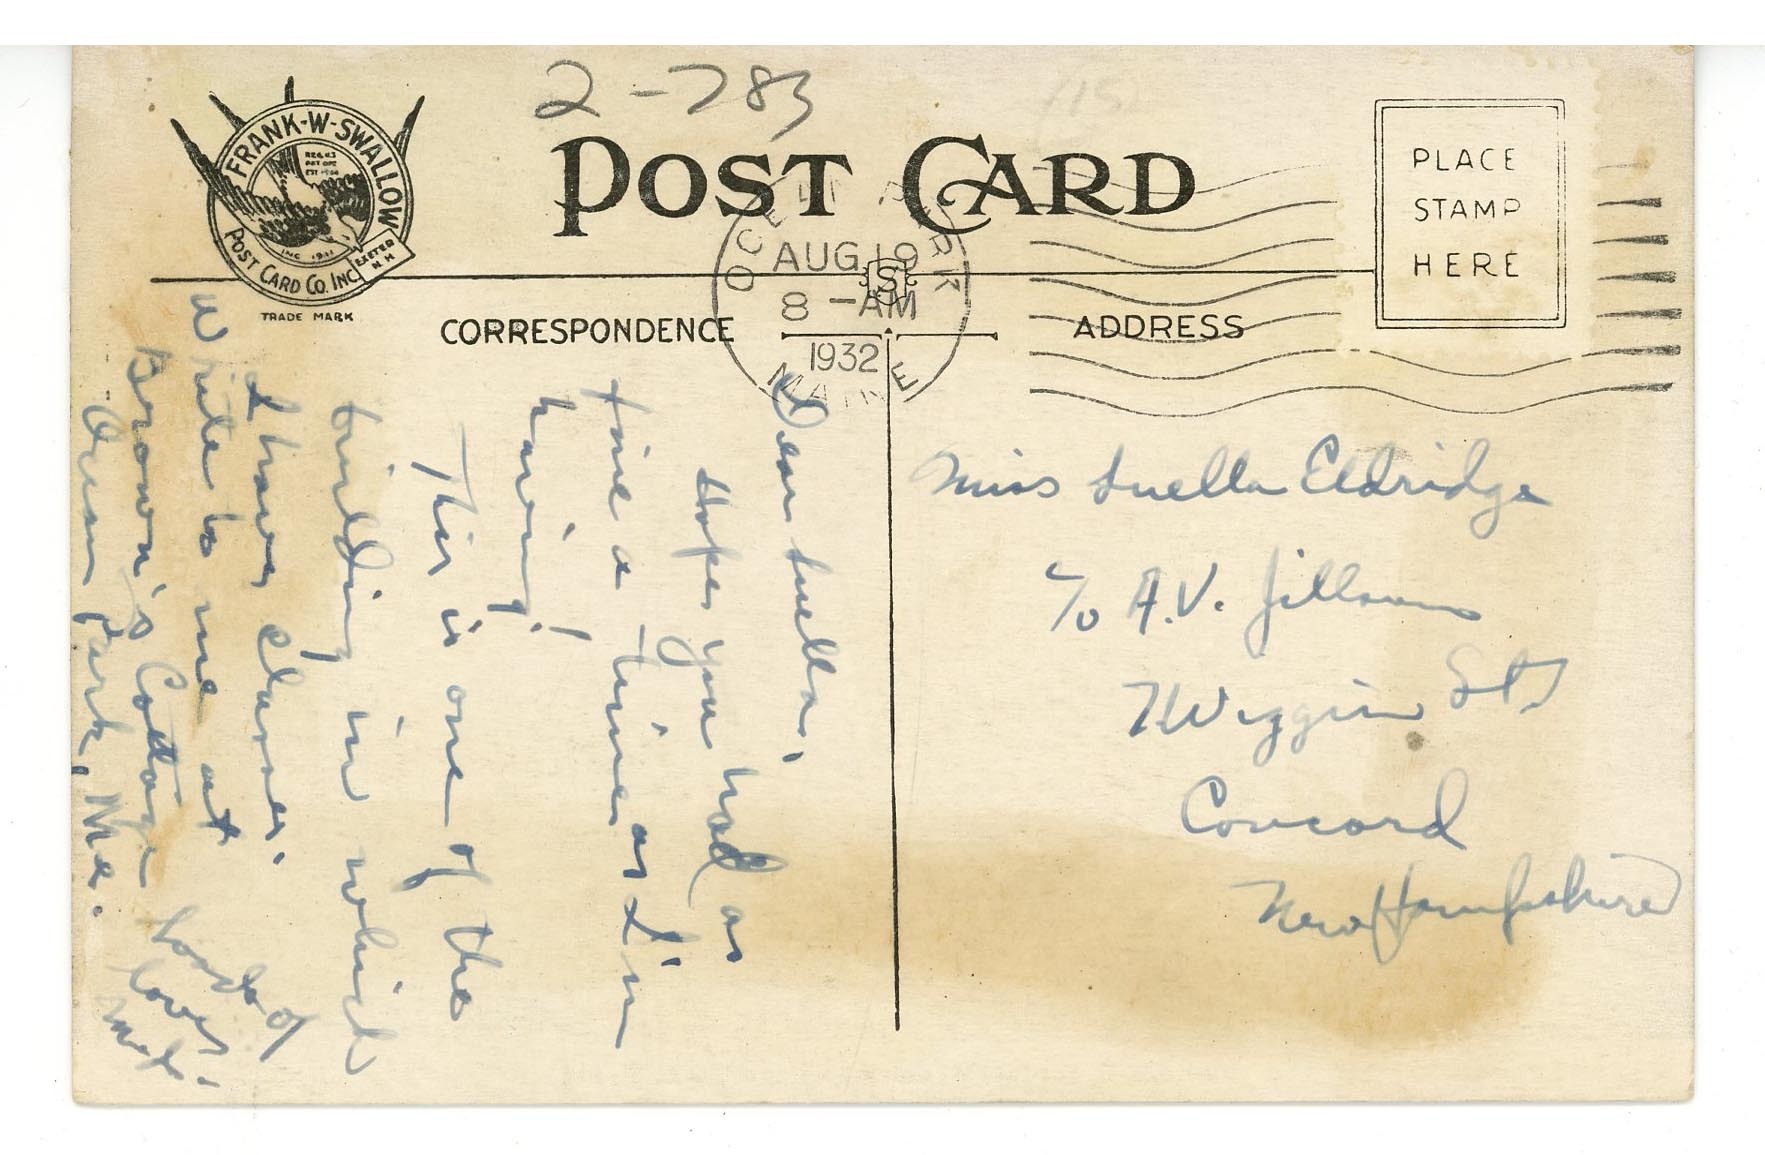 2-783
FRANK-W-SWALLOW
REG. U.S.
PAT OFF.
INC 1911
POST CARD CO. INC.
EXETER
N.H
TRADE MARK
POST CARD
PLACE
STAMP
HERE
OCEAN PARK
AUG 19
8 -AM
1932
MAINE
S
CORRESPONDENCE
ADDRESS
Dear Luella,
Hope you had as
fine a time as I'm
having!
This is one of the
building in which
I have classes.
Write to me at
Brown's Cottage
Ocean Park, Me.
Loads of
love,
Miss Luella Eldridge
c/o A.V.
Wiggin St
Concord
New Hampshire